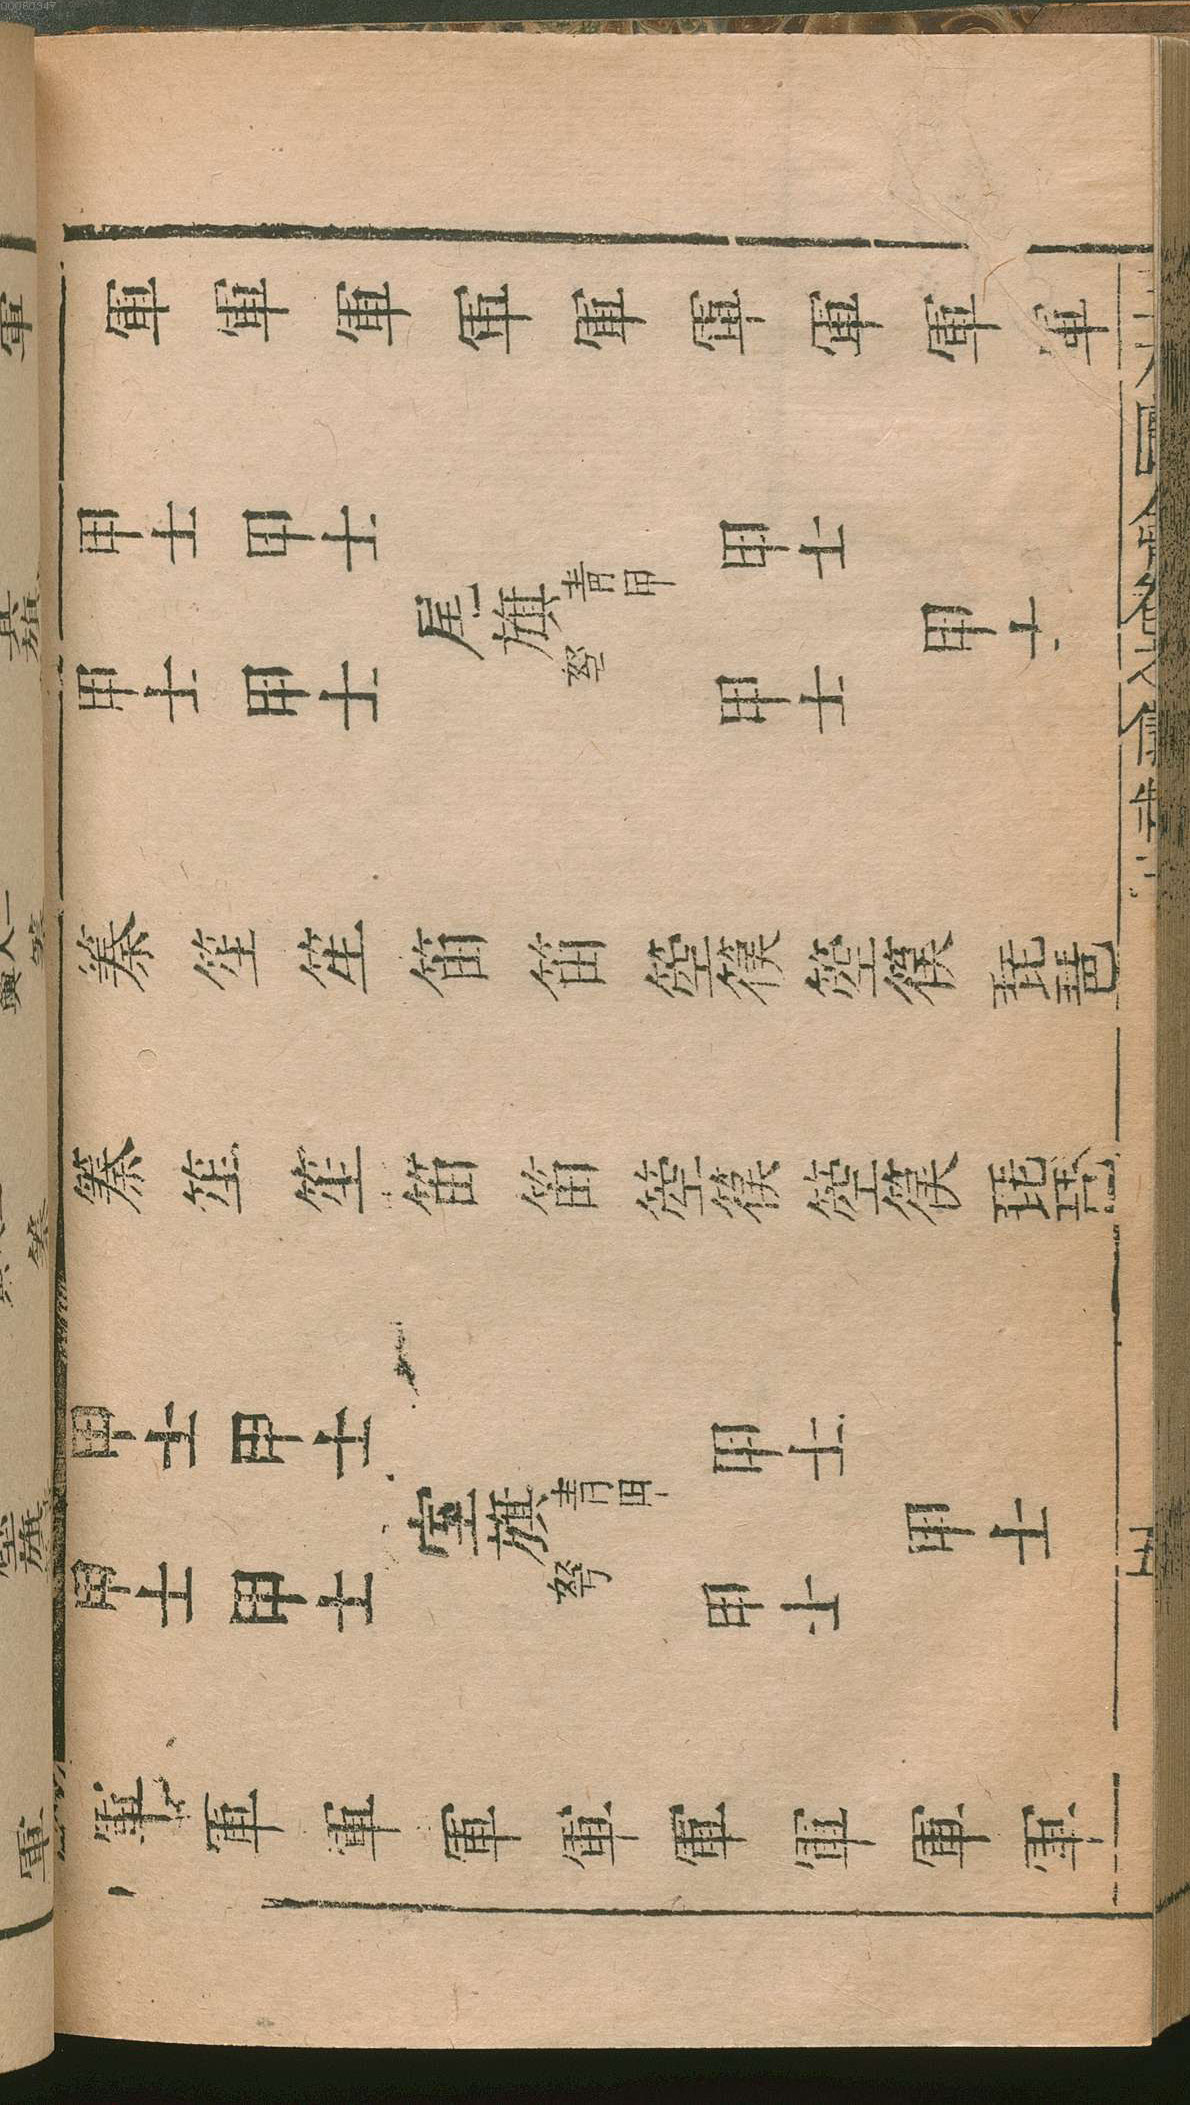 軍 軍 軍 軍 軍 軍 軍 軍 軍
甲士 甲士 青甲 甲士
尾旗 甲士
甲士 甲士 弩 甲士
笙 笙 笛 笛 箜篌 箜篌 琵琶
笙 笙 笛 笛 箜篌 箜篌 琵琶
甲士 甲士 青甲 甲士
室旗 甲士
甲士 甲士 弩 甲士
軍 軍 軍 軍 軍 軍 軍 軍 軍
00080347